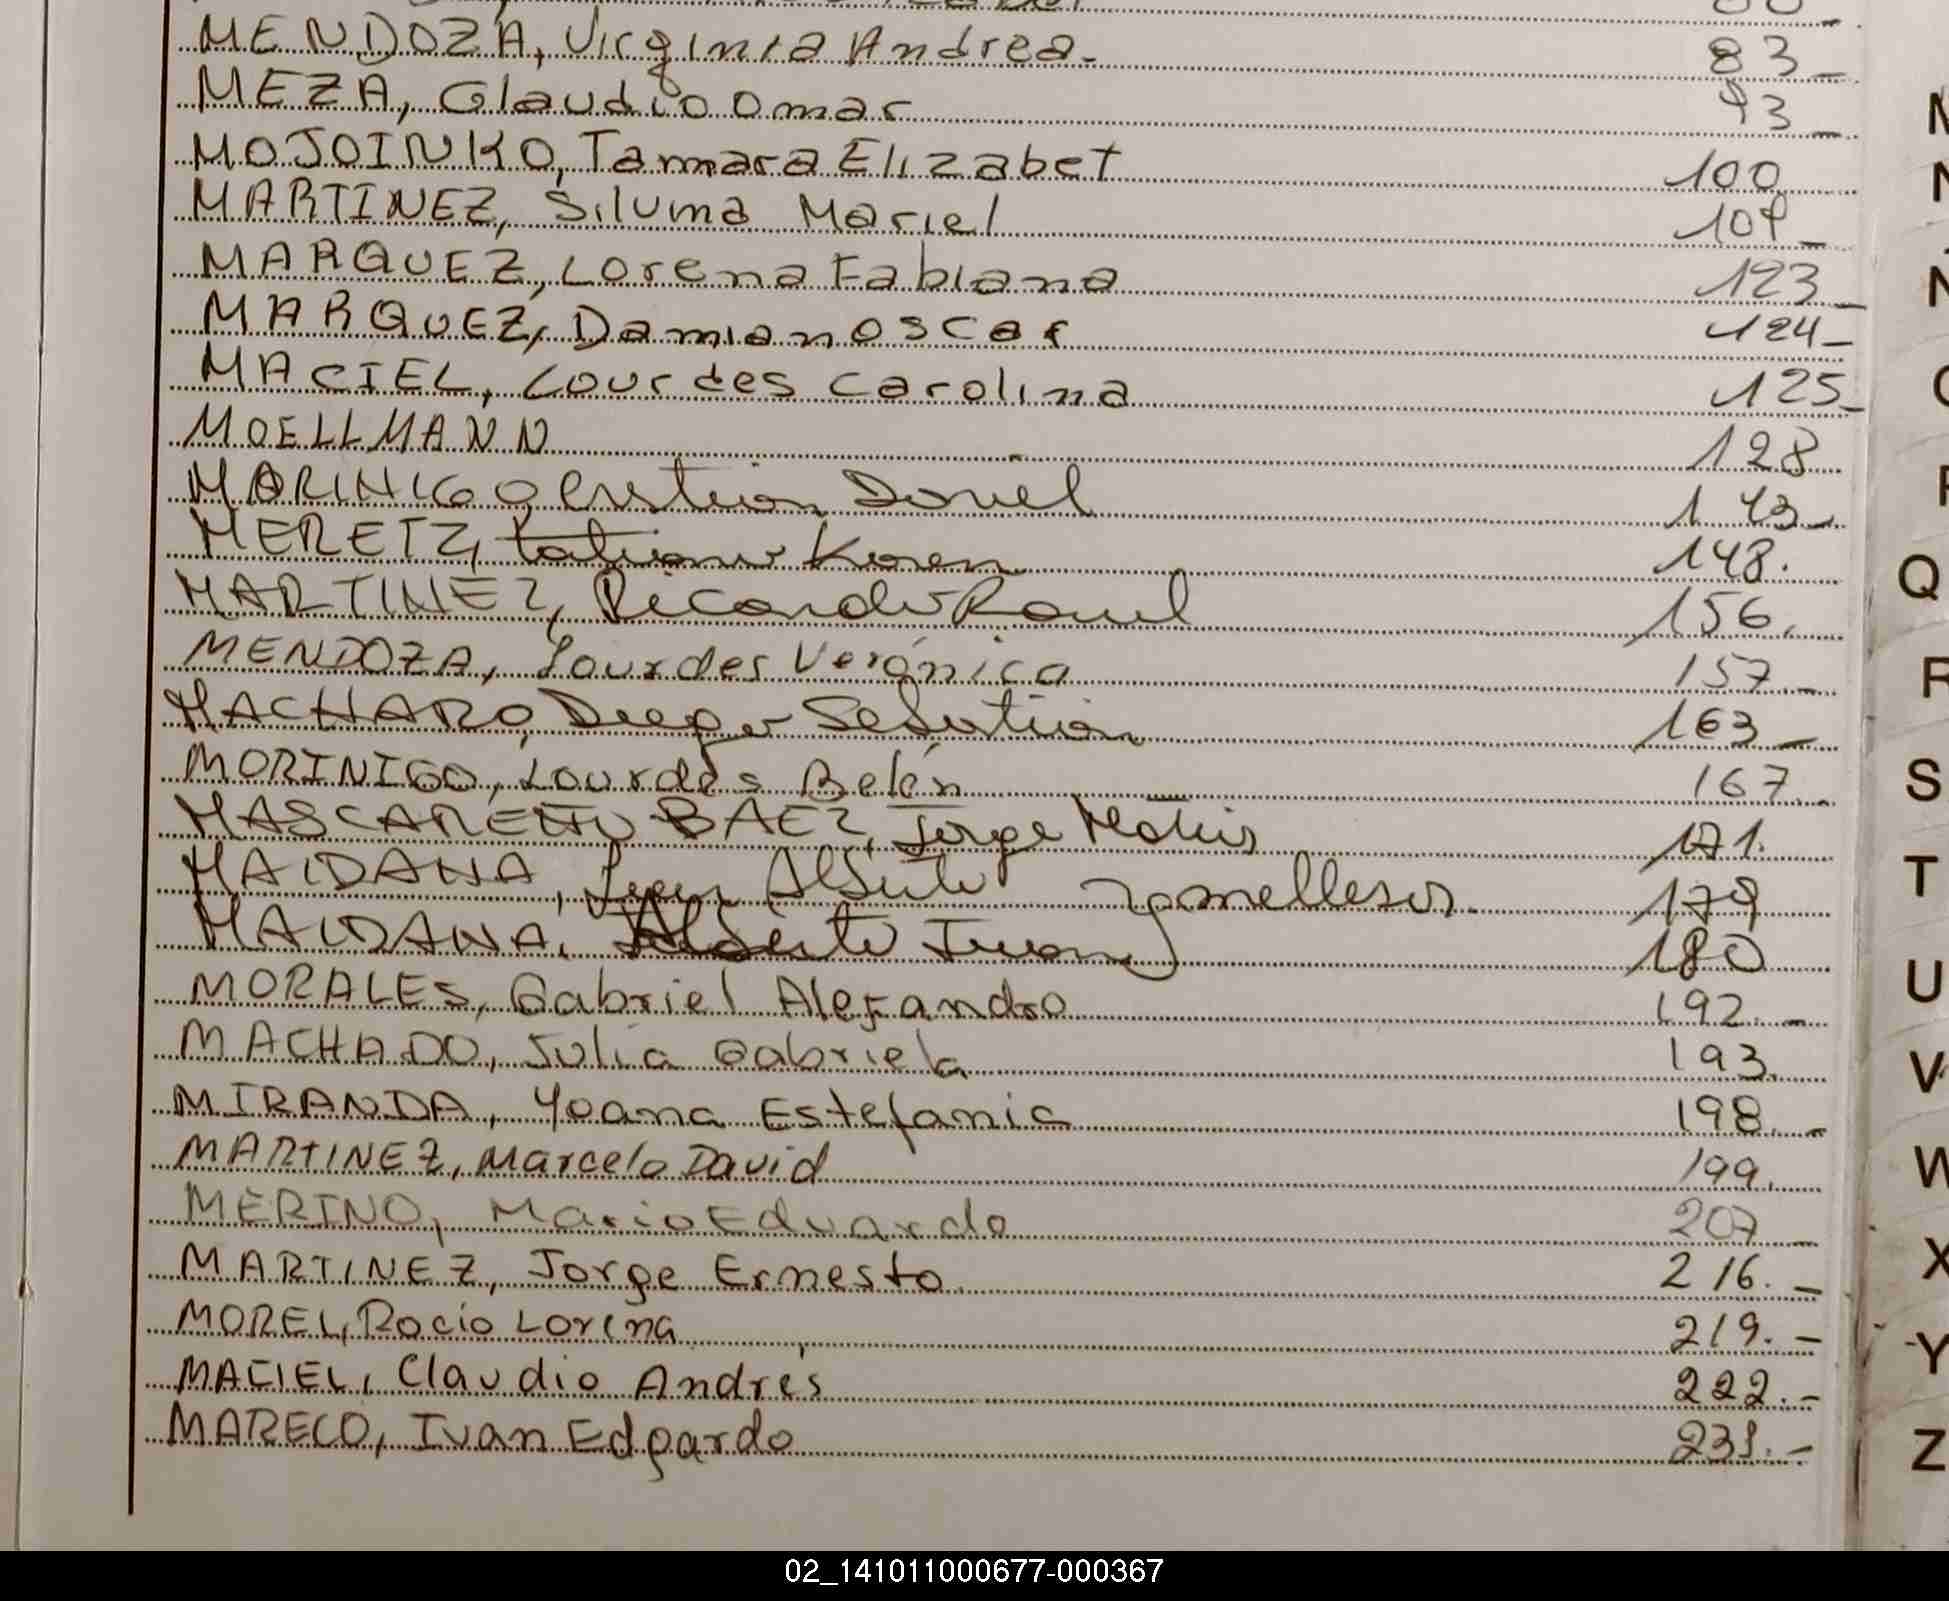 MENDOZA, Virginia Andrea- 83-
MEZA, Claudio Omar 93-
MOJOINKO, Tamara Elizabet 100
MARTINEZ, Siluma Mariel 109-
MARQUEZ, Lorena Fabiana 123-
MARQUEZ, Damian Oscar 124-
MACIEL, Lourdes Carolina 125-
MOELLMANN 128
MORINIGO Cristian Daniel 143-
MERETZ, Tatiana Karen 148.
MARTINEZ, Ricardo Raul 156.
MENDOZA, Lourdes Verónica 157.-
MACHARO, Sebastian 163-
MORINIGO, Lourdes Belén 167.-
MASCAREÑO BAEZ, Jorge Matias 171.
MAIDANA, Alberto 179
MAIDANA, Alberto Ivan 180
MORALES, Gabriel Alejandro 192.-
MACHADO, Julia Gabriela 193.
MIRANDA, Yoana Estefania 198.-
MARTINEZ, Marcelo David 199.
MERINO, Mario Eduardo 207-
MARTINEZ, Jorge Ernesto 216.-
MOREL, Rocio Lorena 219.-
MACIEL, Claudio Andrés 222.-
MARECO, Ivan Edgardo 231.-
Q
R
S
T
U
V
W
X
Y
Z
02_141011000677-000367